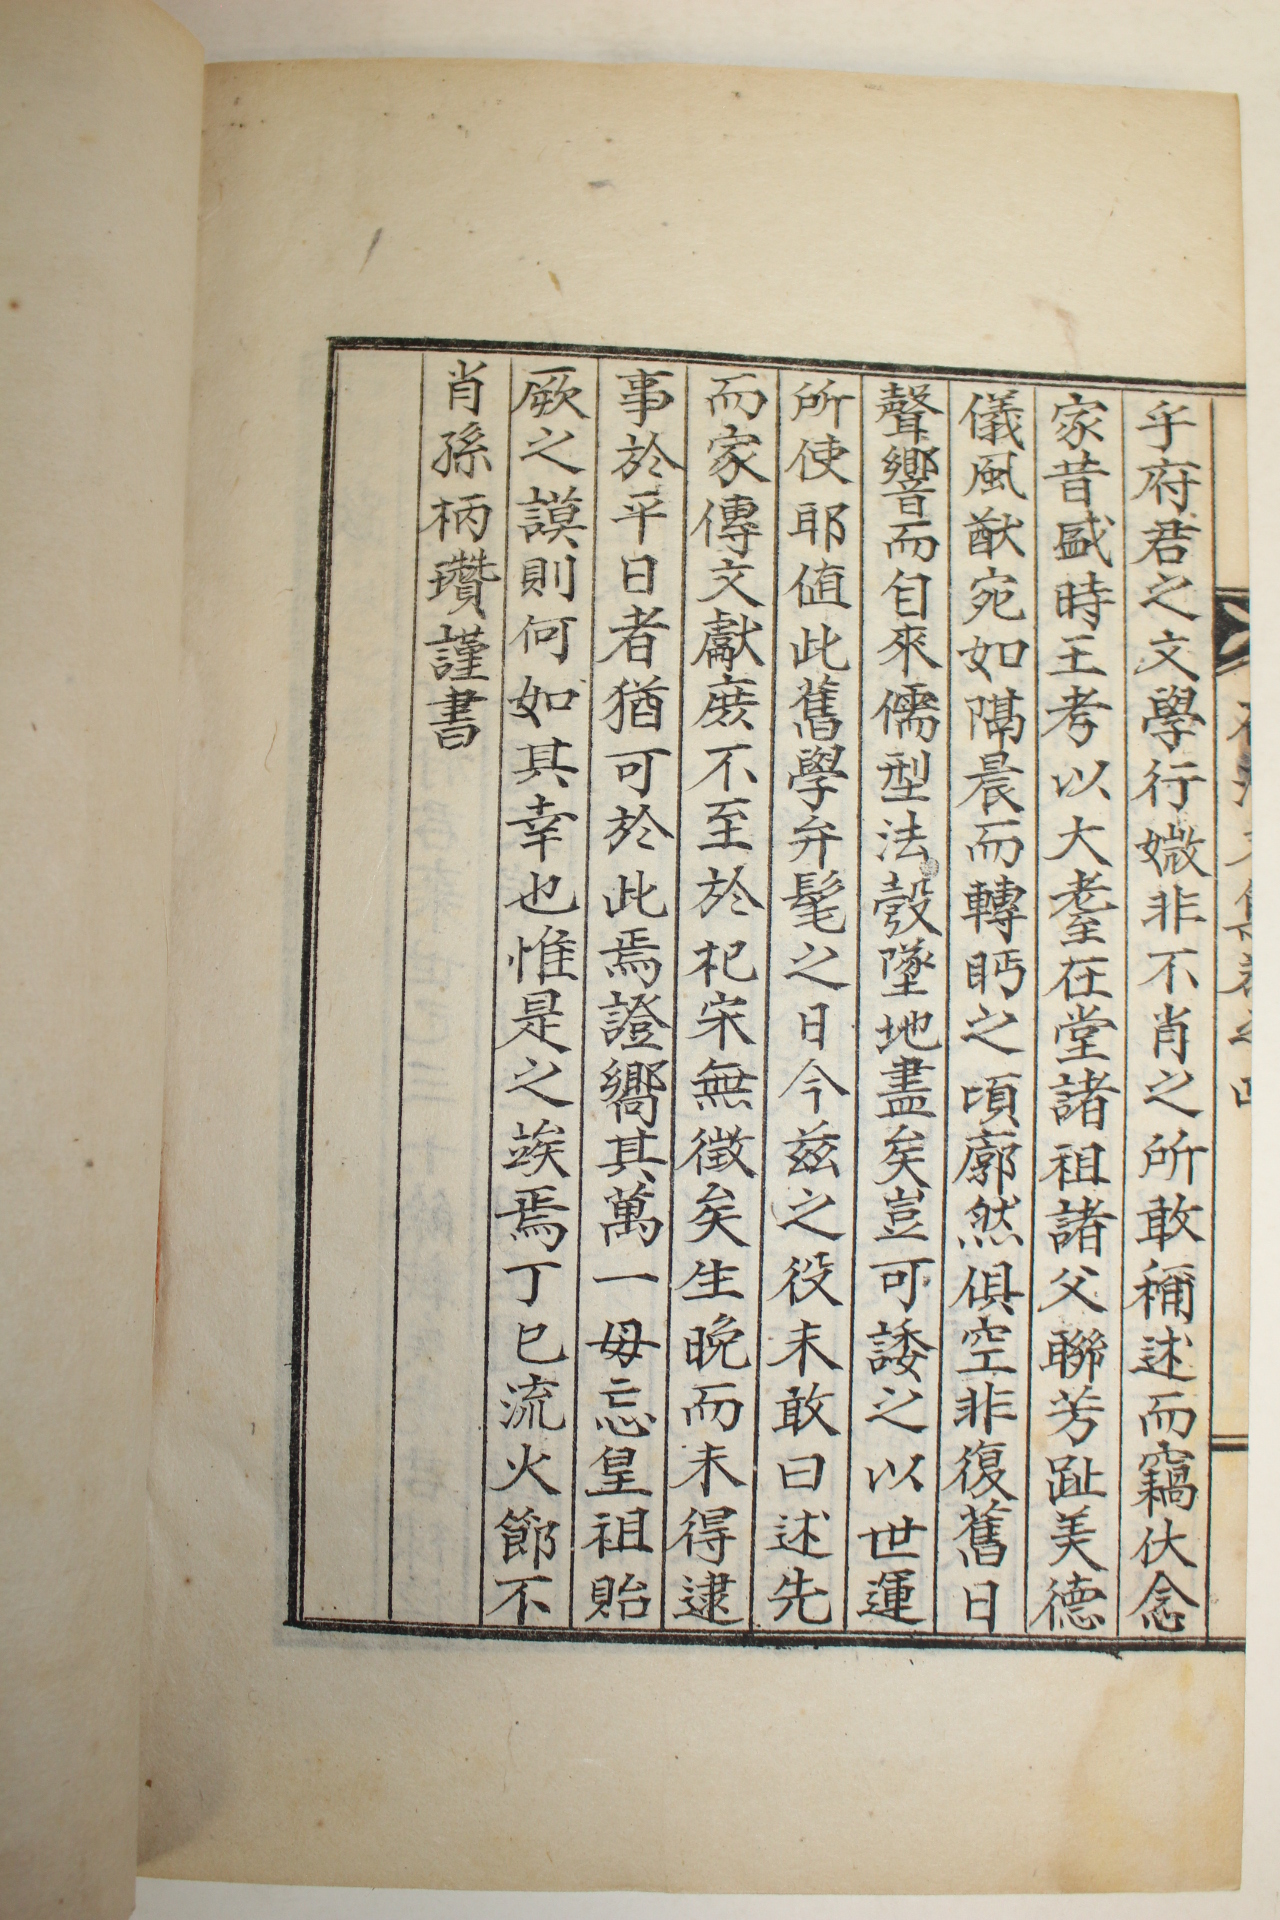 乎府君之文學行媺非不肖之所敢稱述而竊伏念
家昔盛時王考以大耋在堂諸祖諸父聯芳趾美德
儀風猷宛如隔晨而轉眄之頃廓然俱空非復舊日
聲響而自來儒型法彀墜地盡矣豈可諉之以世運
所使耶値此舊學弁髦之日今玆之役未敢曰述先
而家傳文獻庶不至於杞宋無徵矣生晚而未得逮
事於平日者猶可於此焉證嚮其萬一毋忘皇祖貽
厥之謨則何如其幸也惟是之竢焉丁巳流火節不
肖孫柄瓚謹書